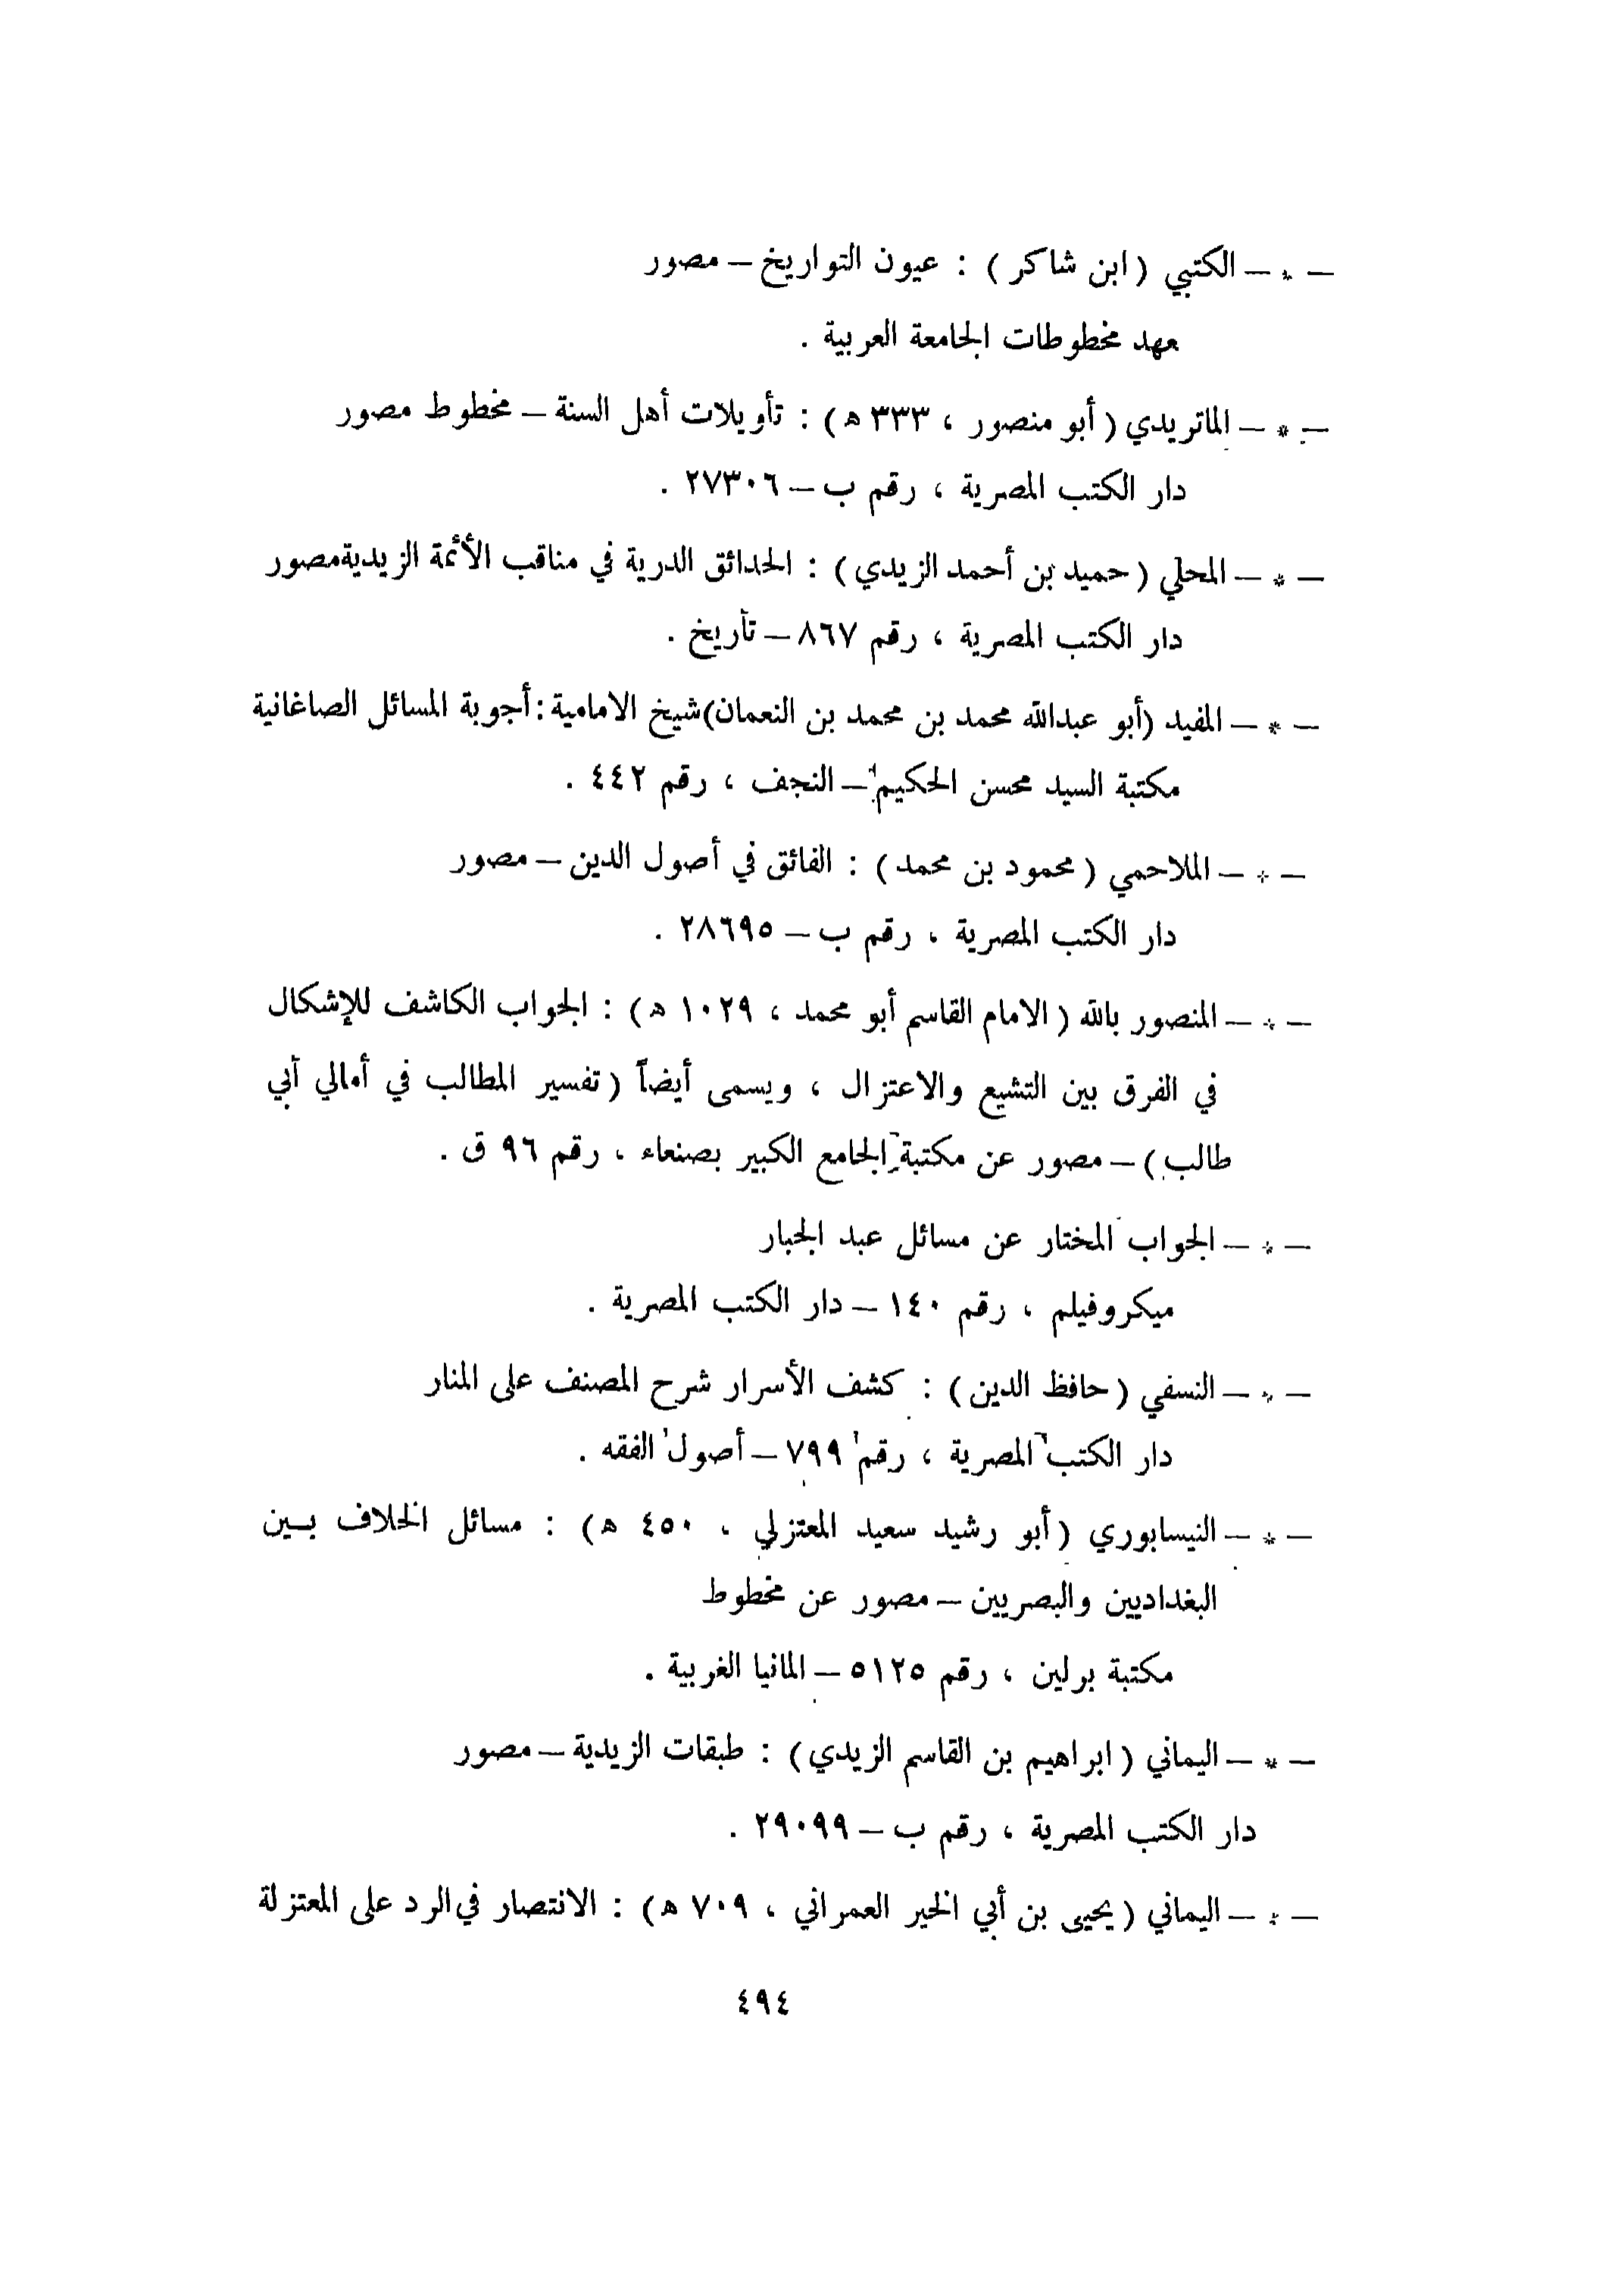 — * — الكتبي ( ابن شاكر ) : عيون التواريخ — مصور
معهد مخطوطات الجامعة العربية .
— * — الماتريدي ( أبو منصور ، ٣٣٣ ه ) : تأويلات أهل السنة — مخطوط مصور
دار الكتب المصرية ، رقم ب — ٢٧٣٠٦ .
— * — المحلي ( حميد بن أحمد الزيدي ) : الحدائق الدرية في مناقب الأئمة الزيدية مصور
دار الكتب المصرية ، رقم ٨٦٧ — تأريخ .
— * — المفيد (أبو عبدالله محمد بن محمد بن النعمان) شيخ الامامية : أجوبة المسائل الصاغانية
مكتبة السيد محسن الحكيم — النجف ، رقم ٤٤٢ .
— * — الملاحمي ( محمود بن محمد ) : الفائق في أصول الدين — مصور
دار الكتب المصرية ، رقم ب — ٢٨٦٩٥ .
— * — المنصور بالله ( الامام القاسم أبو محمد ، ١٠٢٩ ه ) : الجواب الكاشف للإشكال
في الفرق بين التشيع والاعتزال ، ويسمى أيضاً ( تفسير المطالب في أمالي أبي
طالب ) — مصور عن مكتبة الجامع الكبير بصنعاء ، رقم ٩٦ ق .
— * — الجواب المختار عن مسائل عبد الجبار
ميكروفيلم ، رقم ١٤٠ — دار الكتب المصرية .
— * — النسفي ( حافظ الدين ) : كشف الأسرار شرح المصنف على المنار
دار الكتب المصرية ، رقم ٧٩٩ — أصول الفقه .
— * — النيسابوري ( أبو رشيد سعيد المعتزلي ، ٤٥٠ ه ) : مسائل الخلاف بين
البغداديين والبصريين — مصور عن مخطوط
مكتبة برلين ، رقم ٥١٢٥ — المانيا الغربية .
— * — اليماني ( ابراهيم بن القاسم الزيدي ) : طبقات الزيدية — مصور
دار الكتب المصرية ، رقم ب — ٢٩٠٩٩ .
— * — اليماني ( يحيى بن أبي الخير العمراني ، ٧٠٩ ه ) : الانتصار في الرد على المعتزلة
٤٩٤